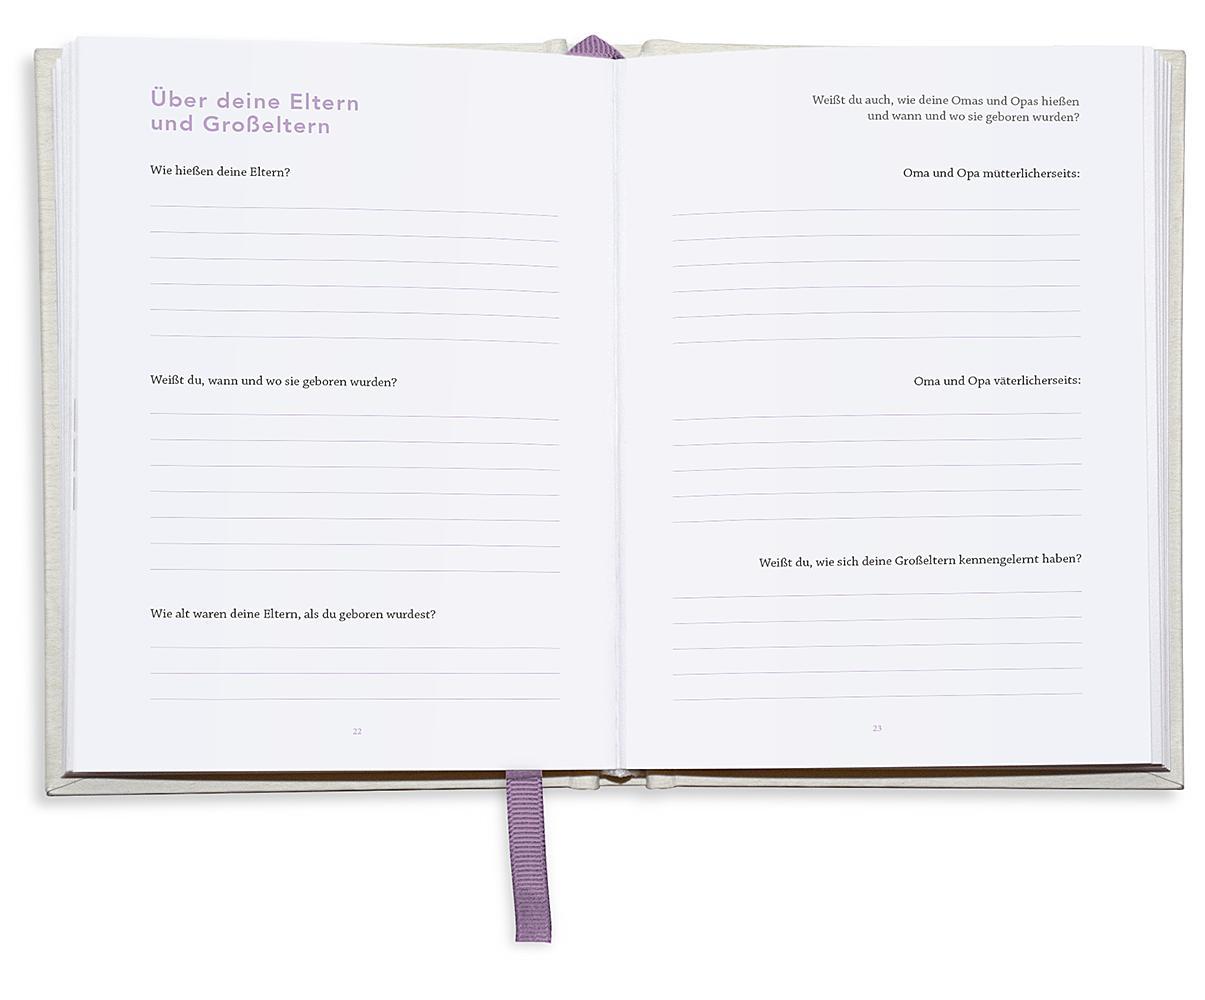 Über deine Eltern
und Großeltern
Wie hießen deine Eltern?
Weißt du, wann und wo sie geboren wurden?
Wie alt waren deine Eltern, als du geboren wurdest?
22
Weißt du auch, wie deine Omas und Opas hießen
und wann und wo sie geboren wurden?
Oma und Opa mütterlicherseits:
Oma und Opa väterlicherseits:
Weißt du, wie sich deine Großeltern kennengelernt haben?
23